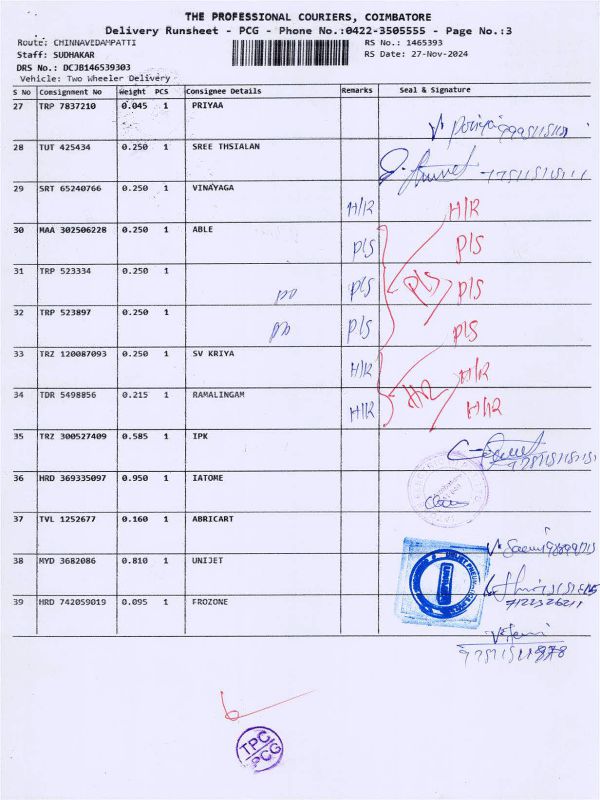 THE PROFESSIONAL COURIERS, COIMBATORE
Delivery Runsheet - PCG - Phone No.:0422-3505555 - Page No.:3
Route: CHINNAVEDAMPATTI
RS No.: 1465393
Staff: SUDHAKAR
RS Date: 27-Nov-2024
DRS No.: DCJB146539303
Vehicle: Two Wheeler Delivery
S No Consignment No Weight PCS Consignee Details Remarks Seal & Signature
27 TRP 7837210 0.045 1 PRIYAA
28 TUT 425434 0.250 1 SREE THSIALAN
29 SRT 65240766 0.250 1 VINAYAGA H/R H/R
30 MAA 302506228 0.250 1 ABLE P/S P/S
31 TRP 523334 0.250 1 P/S P/S P/S
32 TRP 523897 0.250 1 P/S P/S
33 TRZ 120087093 0.250 1 SV KRIYA H/R H/R
34 TDR 5498856 0.215 1 RAMALINGAM H/R H/R H/R
35 TRZ 300527409 0.585 1 IPK
36 HRD 369335097 0.950 1 IATOME
37 TVL 1252677 0.160 1 ABRICART
38 MYD 3682086 0.810 1 UNIJET
39 HRD 742059019 0.095 1 FROZONE
TPC
PCG